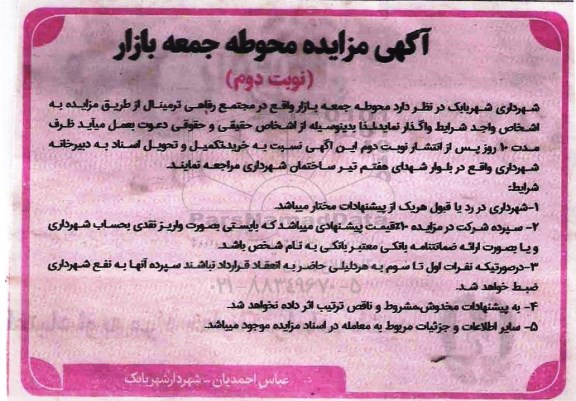 آگهی مزایده محوطه جمعه بازار
(نوبت دوم)
شهرداری شهربابک در نظر دارد محوطه جمعه بازار واقع در مجتمع رفاهی ترمینال از طریق مزایده به
اشخاص واجد شرایط واگذار نماید لذا بدینوسیله از اشخاص حقیقی و حقوقی دعوت بعمل میآید ظرف
مدت ۱۰ روز پس از انتشار نوبت دوم این آگهی نسبت به خرید،تکمیل و تحویل اسناد به دبیرخانه
شهرداری واقع در بلوار شهدای هفتم تیر ساختمان شهرداری مراجعه نمایند.
شرایط:
۱-شهرداری در رد یا قبول هریک از پیشنهادات مختار میباشد.
۲- سپرده شرکت در مزایده ۱۰٪قیمت پیشنهادی میباشد که بایستی بصورت واریز نقدی بحساب شهرداری
و یا بصورت ارائه ضمانتنامه بانکی معتبر بانکی به نام شخص باشد.
۳-درصورتیکه نفرات اول تا سوم به هردلیلی حاضر به انعقاد قرارداد نباشند سپرده آنها به نفع شهرداری
ضبط خواهد شد.
۴- به پیشنهادات مخدوش،مشروط و ناقص ترتیب اثر داده نخواهد شد.
۵- سایر اطلاعات و جزئیات مربوط به معامله در اسناد مزایده موجود میباشد.
عباس احمدیان - شهردار شهربابک
ParsNamadData
۰۲۱-۸۸۳۴۹۶۷۰-۵